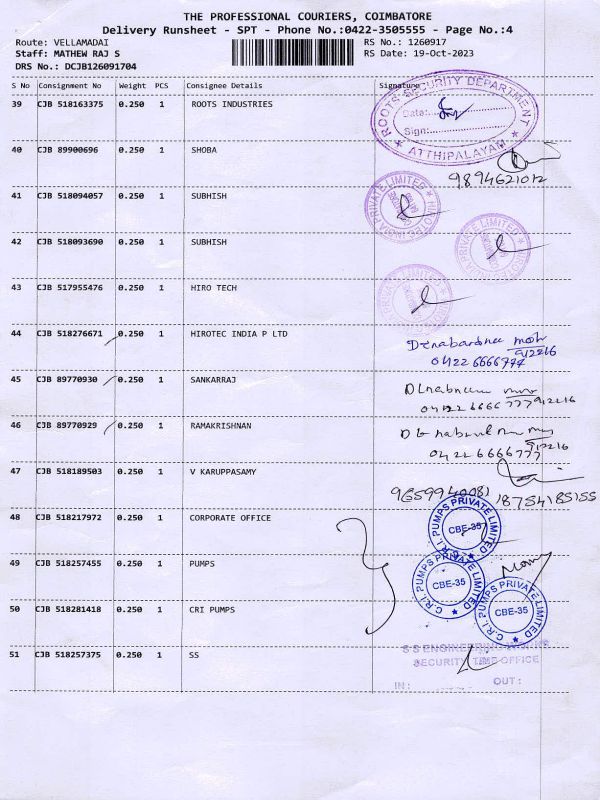 THE PROFESSIONAL COURIERS, COIMBATORE
Delivery Runsheet - SPT - Phone No.:0422-3505555 - Page No.:4
Route: VELLAMADAI RS No.: 1260917
Staff: MATHEW RAJ S RS Date: 19-Oct-2023
DRS No.: DCJB126091704
S No Consignment No Weight PCS Consignee Details Signature
39 CJB 518163375 0.250 1 ROOTS INDUSTRIES
ROOTS SECURITY DEPARTMENT
Date:
Sign:
ATTHIPALAYAM
40 CJB 89900696 0.250 1 SHOBA
9894621012
41 CJB 518094057 0.250 1 SUBHISH
42 CJB 518093690 0.250 1 SUBHISH
43 CJB 517955476 0.250 1 HIRO TECH
44 CJB 518276671 0.250 1 HIROTEC INDIA P LTD
912216
04226666777
45 CJB 89770930 0.250 1 SANKARRAJ
04226666777 912216
46 CJB 89770929 0.250 1 RAMAKRISHNAN
912216
04226666777
47 CJB 518189503 0.250 1 V KARUPPASAMY
9659940081 18754185155
48 CJB 518217972 0.250 1 CORPORATE OFFICE
C.R.I. PUMPS PRIVATE LIMITED
CBE-35
49 CJB 518257455 0.250 1 PUMPS
C.R.I. PUMPS PRIVATE LIMITED
CBE-35
50 CJB 518281418 0.250 1 CRI PUMPS
C.R.I. PUMPS PRIVATE LIMITED
CBE-35
51 CJB 518257375 0.250 1 SS
S S ENGINEERING WORKS
SECURITY TIME OFFICE
IN: OUT: